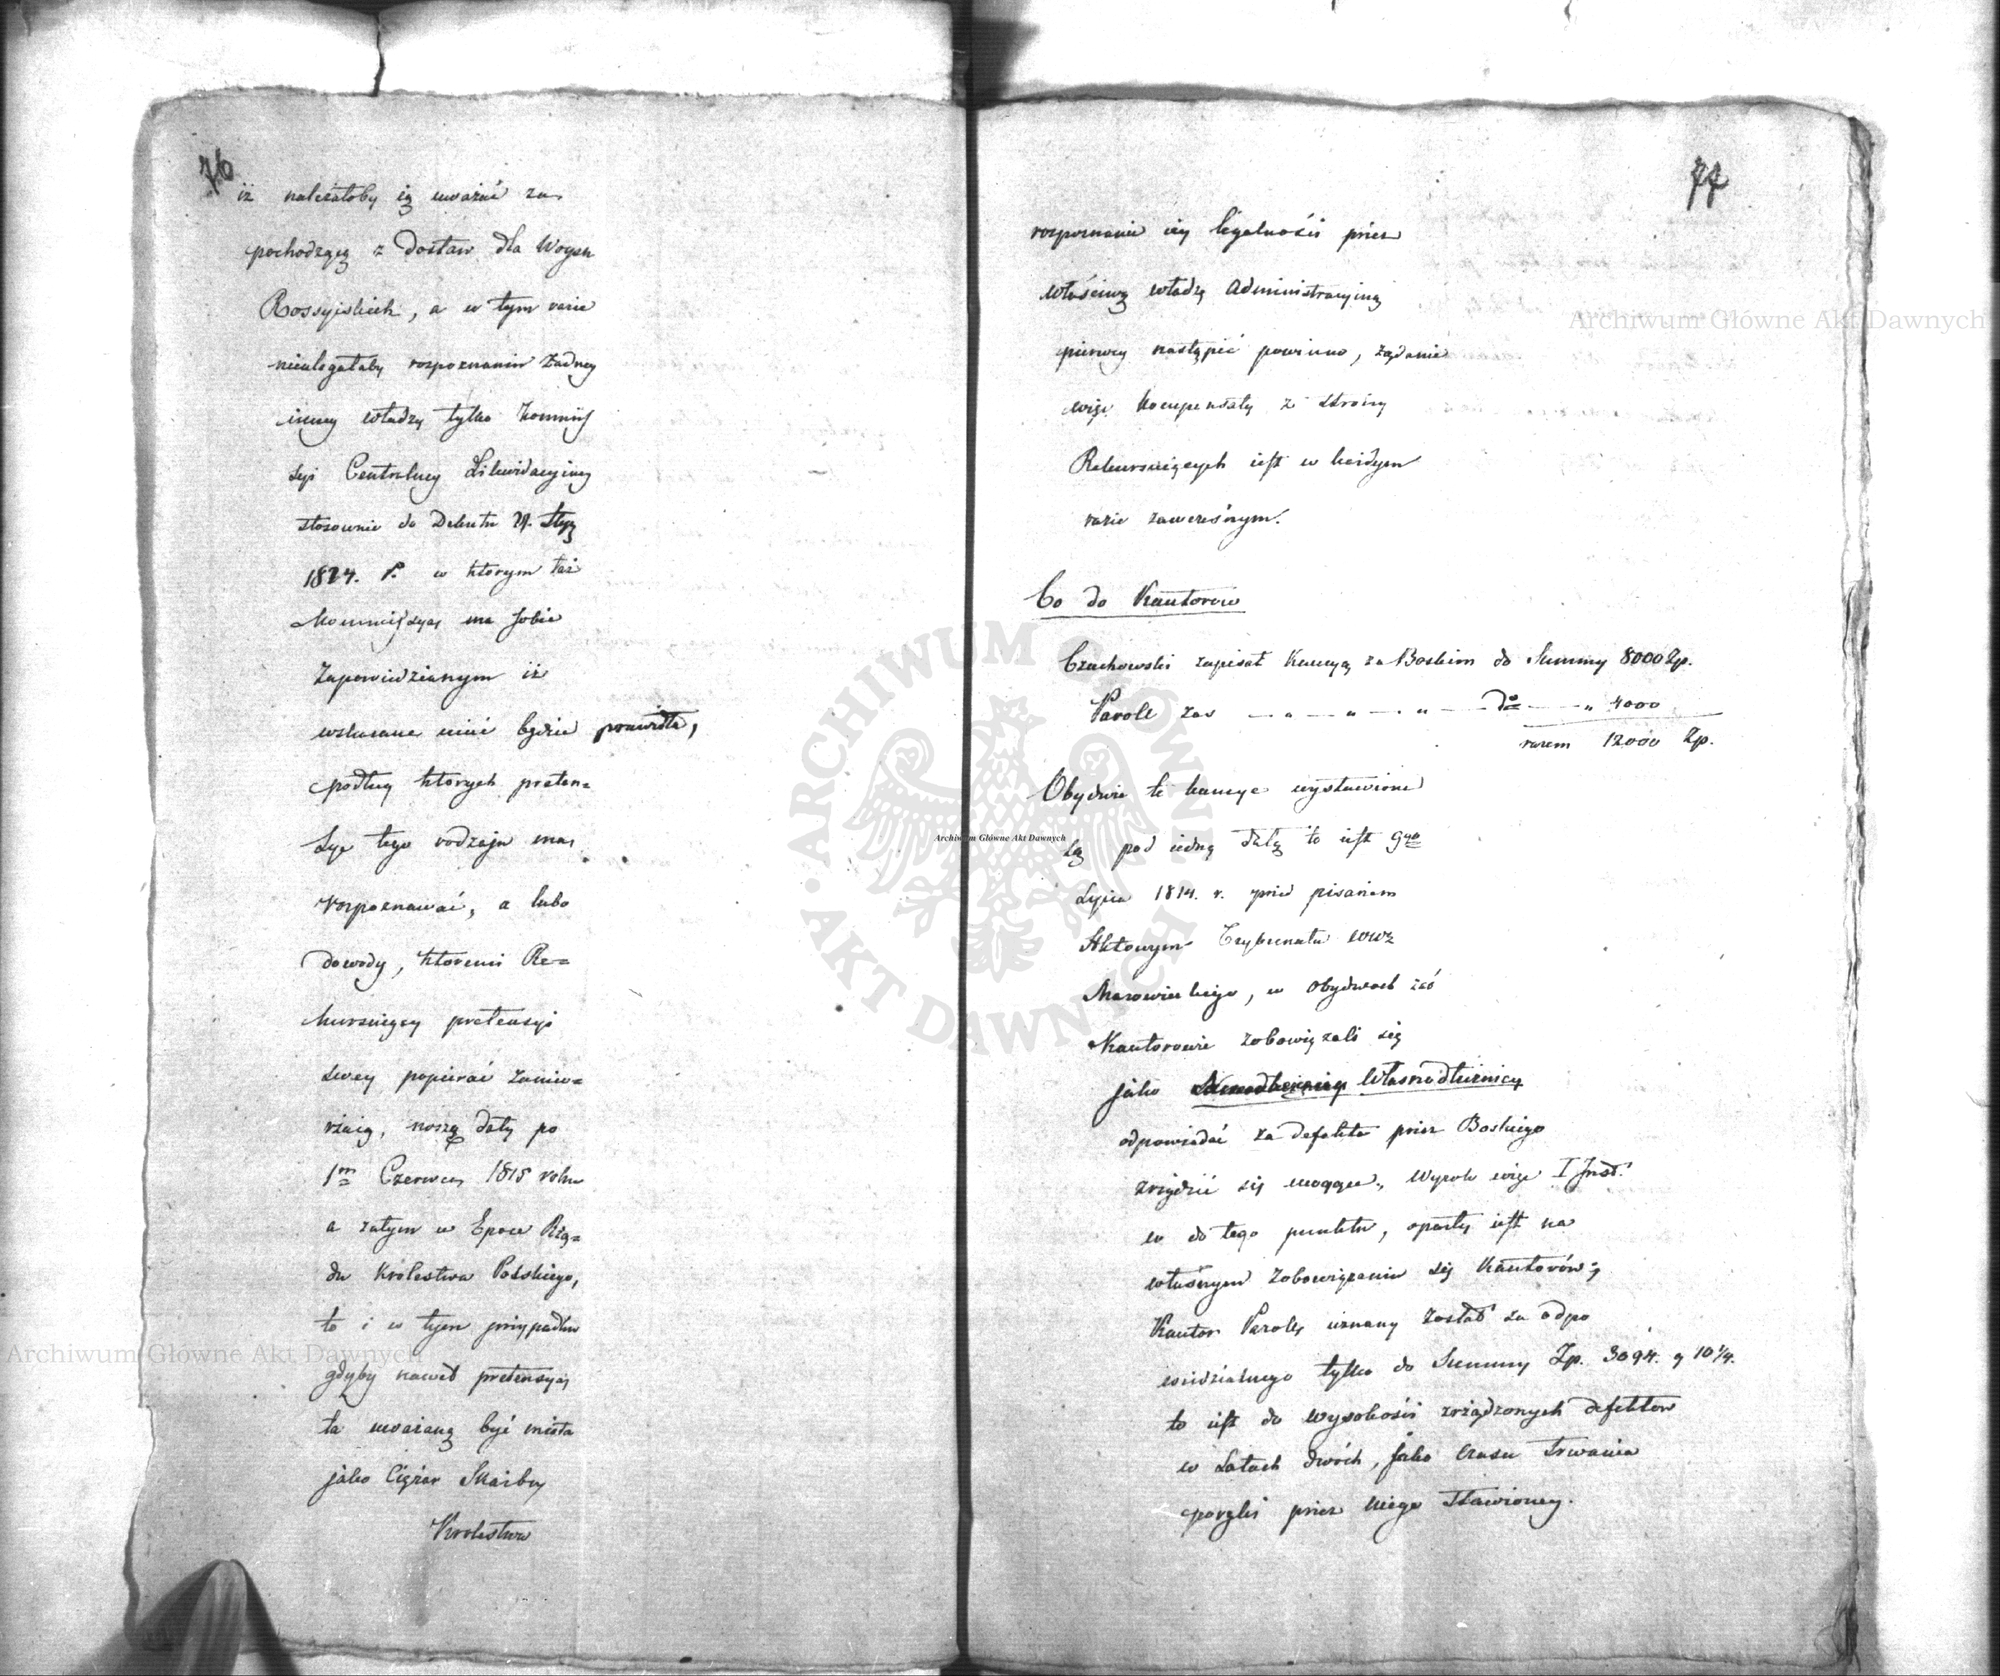 76
iż należałoby ią uważać za
pochodzącą z Dostaw dla Woysk
Rossyiskich, a w tym razie
nieulegałaby rozpoznaniu żadney
inney władzy tylko Kommis
syi Centralney Likwidacyiney
stosownie do Dekretu
1824. r. w którym taż
Kommissya ma sobie
Zapowiedzianym iż
wskazane mieć będzie prawidła,
podług których preten=
sye tego rodzaju ma
rozpoznawać, a lubo
dowody, któremi Re=
kursuiący pretensyi
swey popierać zamie=
rzaią, noszą daty po
1m Czerwca 1815 roku
a zatym w Epoce Rzą=
du Królestwa Polskiego,
to i w tym przypadku
gdyby nawet pretensya
ta uważaną być miała
jako Ciężar Skarbu
Królestwa
77
rozpoznanie iey legalności przez
właściwą władzę Administracyiną
pierwey nastąpić powinno, żądanie
więc kompensaty z strony
Rekursuiących iest w każdym
razie zawczesnym.
Co do Kautorów
Czachowski zapisał Kaucyą za Boskim do Summy 8000 Zp.
Paroll zaś — „ — „ — „ — do — „ 4000
razem 12000 Zp.
Obydwie te kaucye wystawione
są pod iedną datą to iest 9go
Lipca 1814. r. przed pisarzem
Aktowym Trybunału
Mazowieckiego, w obydwóch zaś
Kautorowie zobowiązali się
jako Własnodłużnicy
odpowiadać za defekta przez Boskiego
zrządzić się mogące, Wyrok więc I Inst.
co do tego punktu, oparty iest na
własnym zobowiązaniu się Kautorów;
Kautor Paroll uznany został za odpo
wiedzialnego tylko do Summy Zp. 3094. g 10 1/4.
to iest do wysokości zrządzonych defektów
w Latach dwóch, jako czasu trwania
poręki przez niego stawioney.
Archiwum Główne Akt Dawnych
Archiwum Główne Akt Dawnych
Archiwum Główne Akt Dawnych
ARCHIWUM GŁÓWNE AKT DAWNYCH